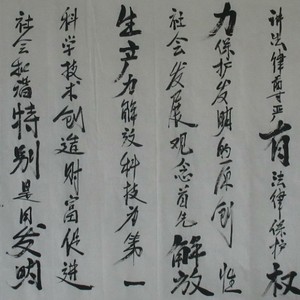 讲法律尊严有法律保护权
力保护发明的原创性
社会发展观念首先解放
生产力解放科技为第一
科学技术创造财富促进
社会和谐特别是用发明